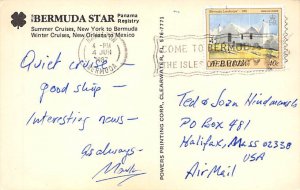 THE BERMUDA STAR Panama Registry
Summer Cruises, New York to Bermuda
Winter Cruises, New Orleans to Mexico
4 - PM
4 JUN
BERMUDA
COME TO BERMUDA
THE ISLES
Quiet cruise -
good ship -
Interesting news -
As always -
POWERS PRINTING CORP., CLEARWATER, FL 576-7771
Ted & Joan Hindmarsh
PO Box 481
Halifax, Mass 02338
USA
Air Mail